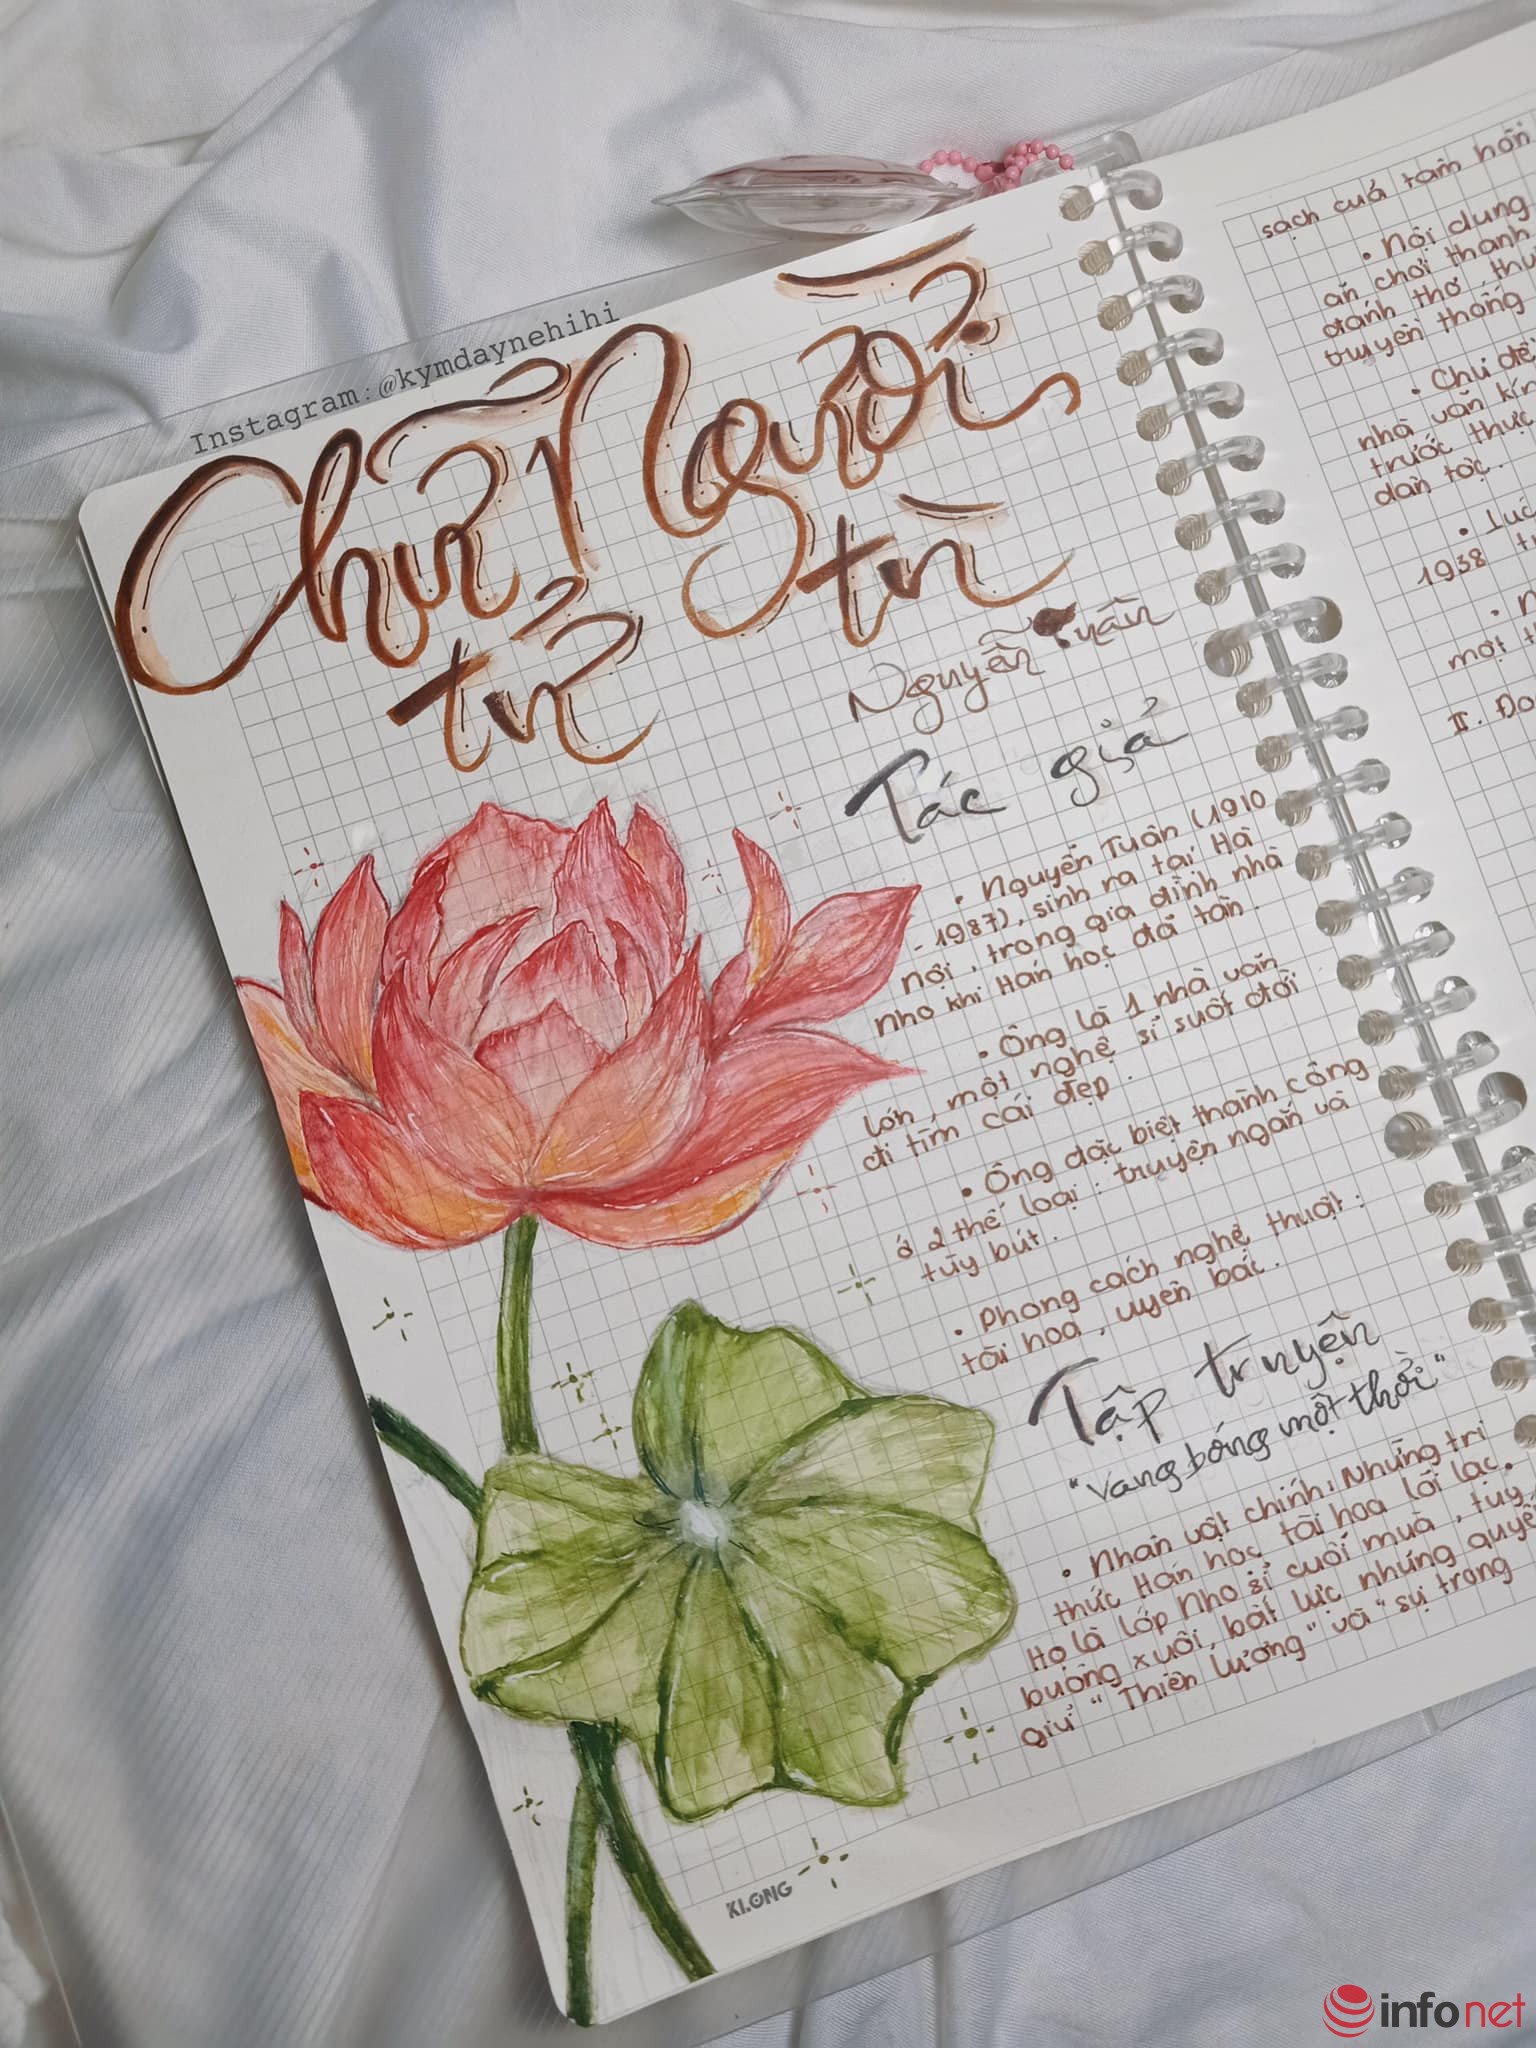 Instagram:@kymdaynehihi
Chữ Người
tử tù
Nguyễn Tuân
Tác giả
• Nguyễn Tuân (1910
- 1987), sinh ra tại Hà
Nội, trong gia đình nhà
nho khi Hán học đã tàn.
• Ông là 1 nhà văn
lớn, một nghệ sĩ suốt đời
đi tìm cái đẹp.
• Ông đặc biệt thành công
ở 2 thể loại: truyện ngắn và
tùy bút.
• Phong cách nghệ thuật:
tài hoa, uyên bác.
Tập truyện
"Vang bóng một thời"
• Nhân vật chính: Những trí
thức Hán học tài hoa lỗi lạc.
Họ là lớp Nho sĩ cuối mùa, tuy
buông xuôi, bất lực nhưng quyết
giữ "Thiên lương" và "sự trong
KLONG
sạch của tâm hồn
• Nội dung
ăn chơi thanh
đánh thơ, thư
truyền thống
• Chủ đề
nhà văn kín
trước thực
dân tộc.
• Lúc
1938
một
II. Đo
infonet